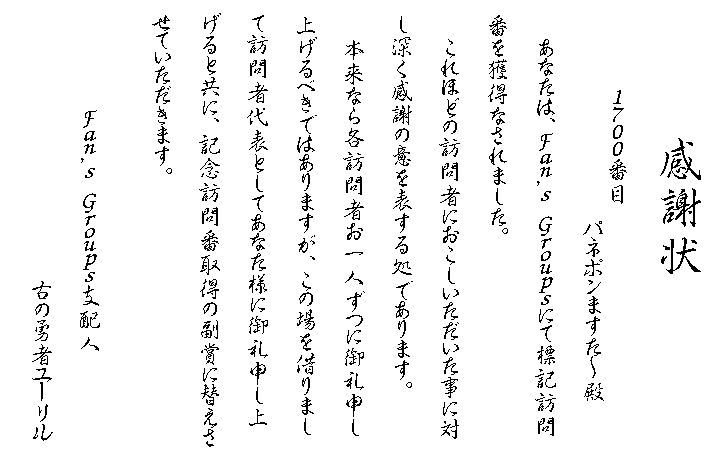 感謝状
1700番目
パネポンますた～殿
あなたは、Fan's Groupsにて標記訪問
番を獲得なされました。
これほどの訪問者におこしいただいた事に対
し深く感謝の意を表する処であります。
本来なら各訪問者お一人ずつに御礼申し
上げるべきではありますが、この場を借りまし
て訪問者代表としてあなた様に御礼申し上
げると共に、記念訪問番取得の副賞に替えさ
せていただきます。
Fan's Groups支配人
古の勇者ユーリル